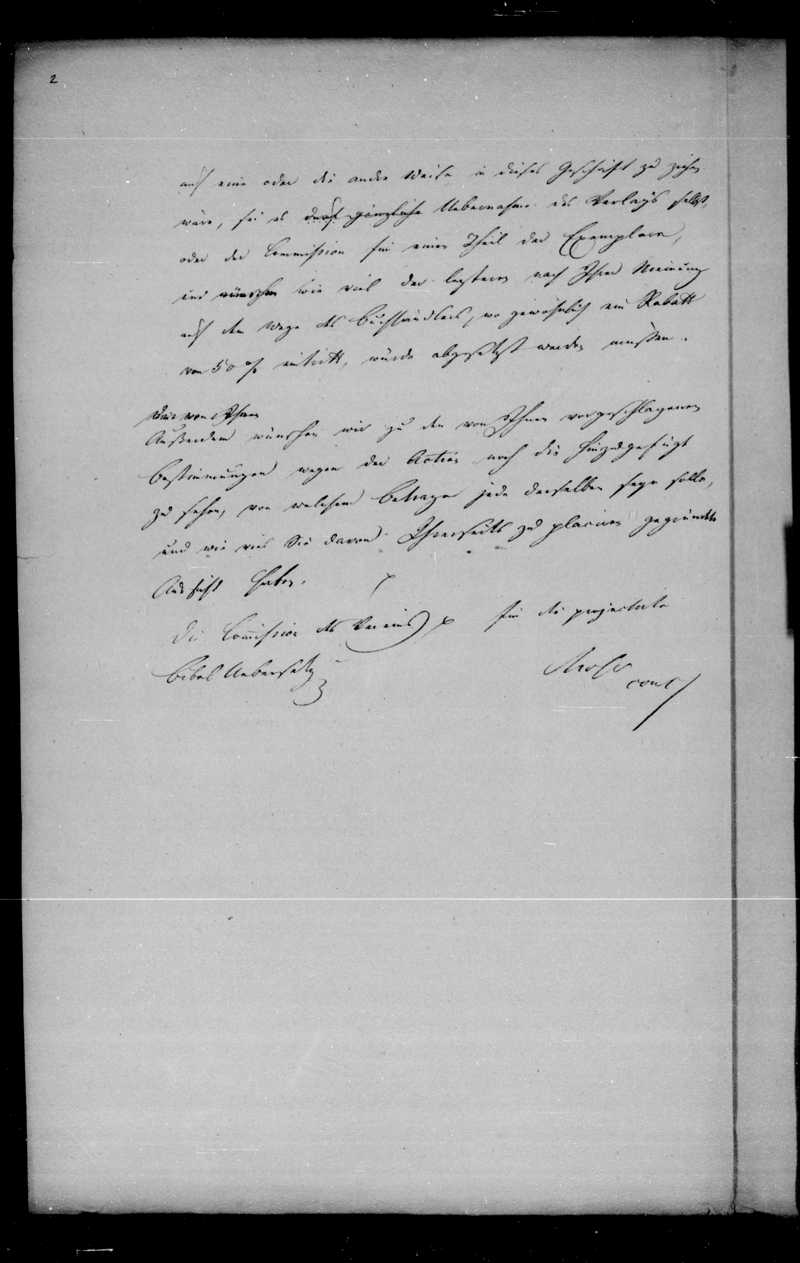 2
auf eine oder die andre Weise in dieses Geschäft zu ziehen
wäre, sei es durch gänzliche Uebernahme des Verlags selbst,
oder der Commission für einen Theil der Exemplare,
und wie viel der letzteren nach Ihrer Meinung
auf dem Wege des Buchhandels, wo gewöhnlich ein Rabatt
von 50 % eintritt, würde abgesetzt werden müssen.
von Ihnen
Außerdem wünschen wir zu den von Ihnen vorgeschlagenen
Bestimmungen wegen der Actien noch die hinzugefügt
zu sehen, von welchem Betrage jede derselben seyn solle,
und wie viel Sie davon Ihrerseits zu placiren gegründete
Aussicht haben.
Die Commission des Vereins für die projectirte
Bibel Uebersetzg
Moser